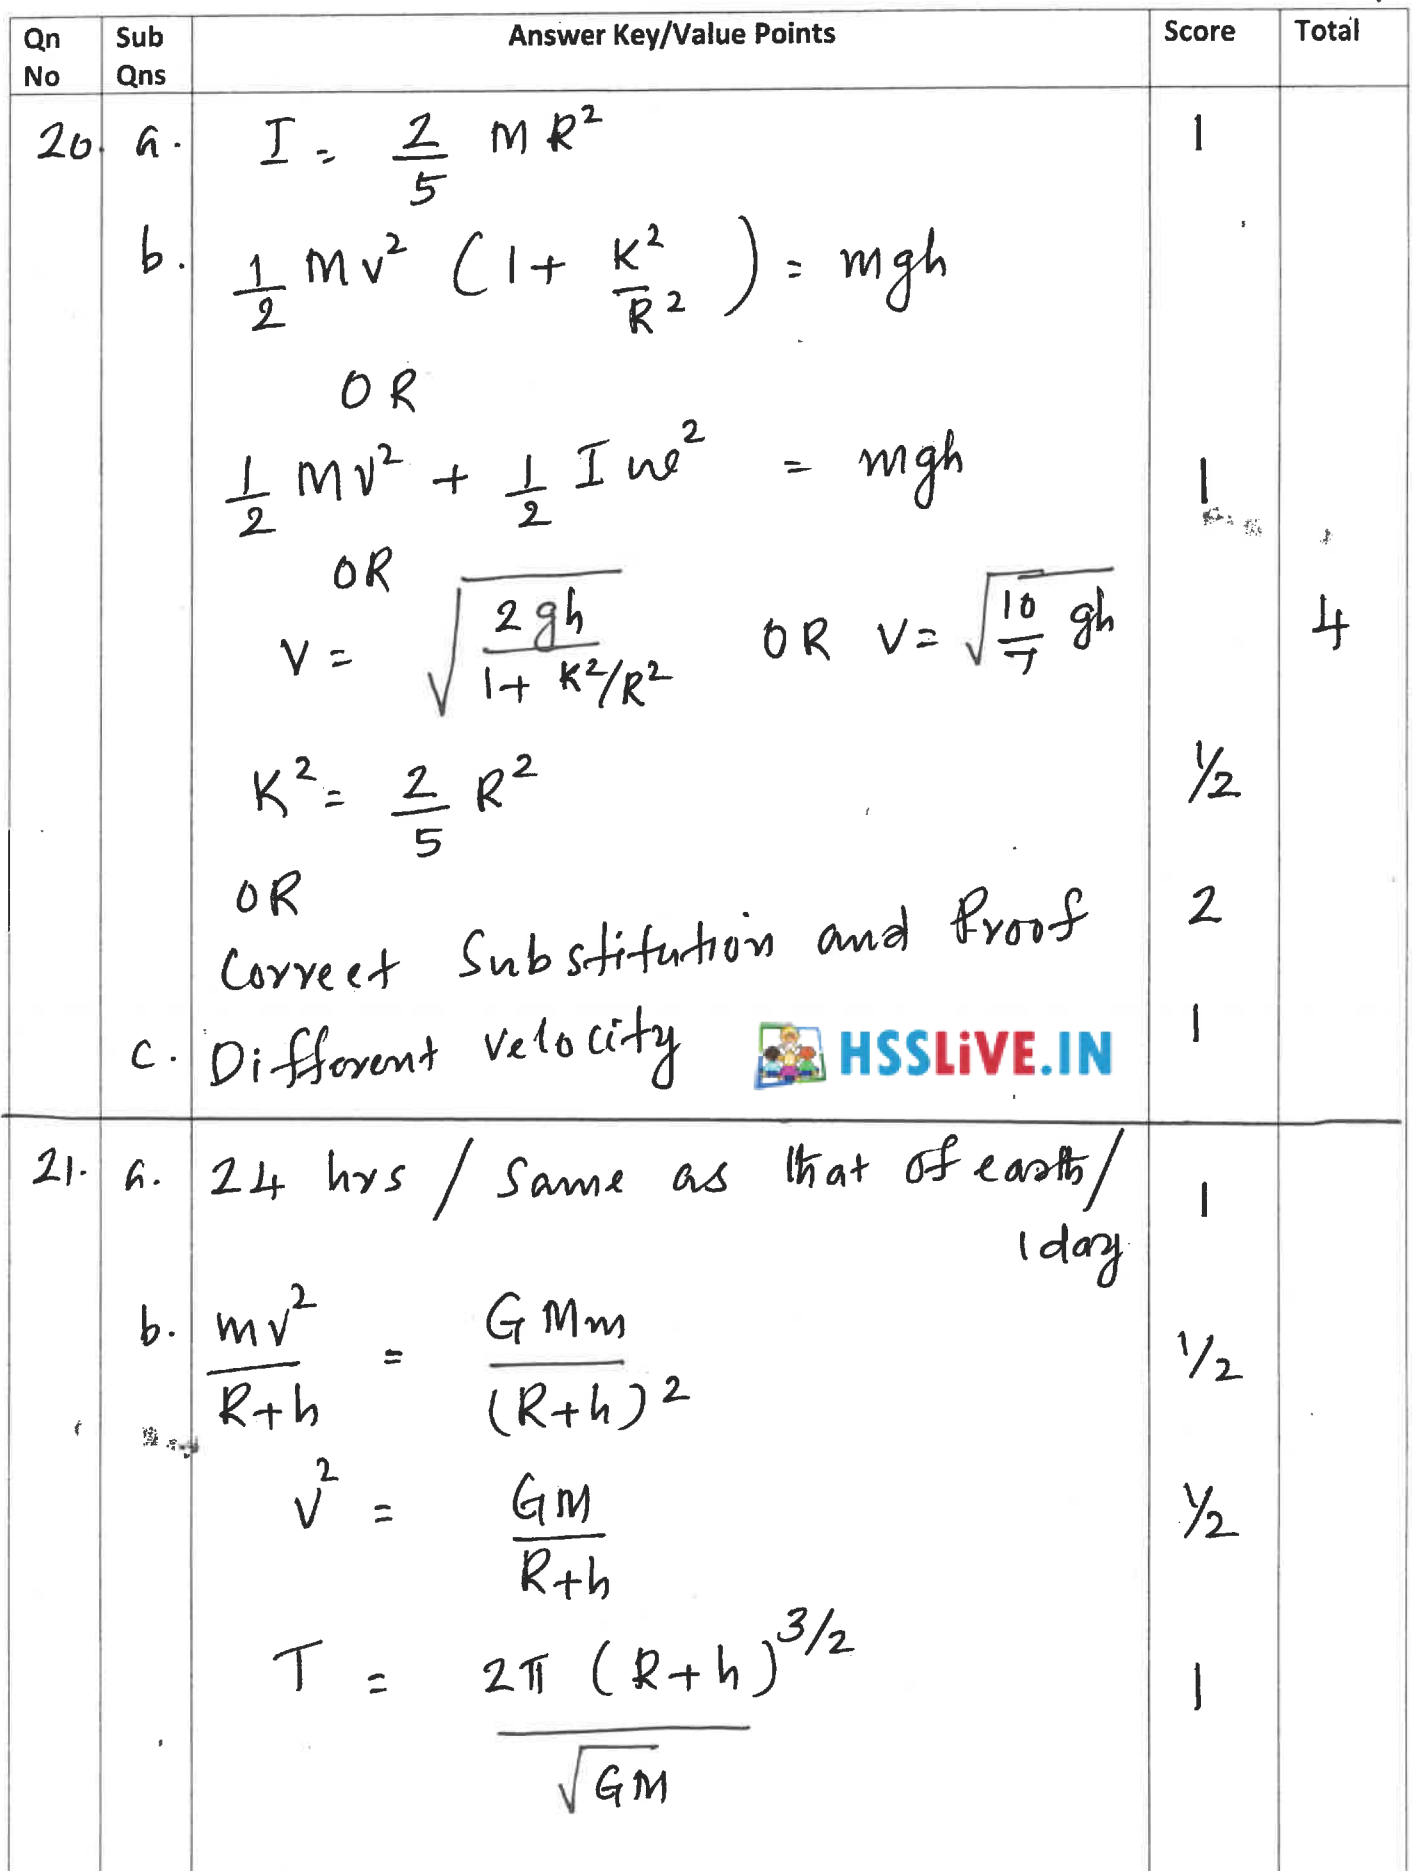 Qn No	Sub Qns	Answer Key/Value Points	Score	Total
20. a. I = 2/5 MR² 1
b. 1/2 Mv² (1 + K²/R²) = mgh
OR
1/2 Mv² + 1/2 I ω² = mgh 1
OR
V = √(2gh / (1 + K²/R²)) OR V = √(10/7 gh) 4
K² = 2/5 R² ½
OR
Correct Substitution and Proof 2
c. Different velocity HSSLiVE.IN 1
21. a. 24 hrs / Same as that of earth / 1
1 day
b. mv²/(R+h) = GMm/(R+h)² 1/2
v² = GM/(R+h) ½
T = 2π (R+h)^3/2 / √GM 1